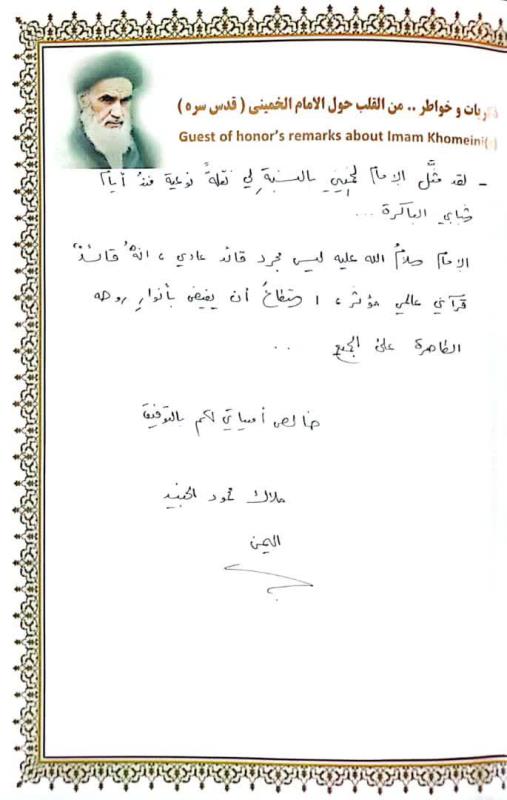 ذكريات و خواطر .. من القلب حول الامام الخميني ( قدس سره )
Guest of honor's remarks about Imam Khomeini
- لقد مثَّل الإمام الخميني بالنسبةِ لي نقلةً نوعية منذُ أيام
شبابي الباكرة ...
الإمام سلامُ الله عليه ليس مجرد قائد عادي ، انهُ قائدٌ
قرآني عالمي مؤثر ، استطاعَ أن يفيض بأنوارِ روحه
الطاهرة على الجميع ...
خالص أمنياتي لكم بالتوفيق
ملاك محمود الجنيد
اليمن